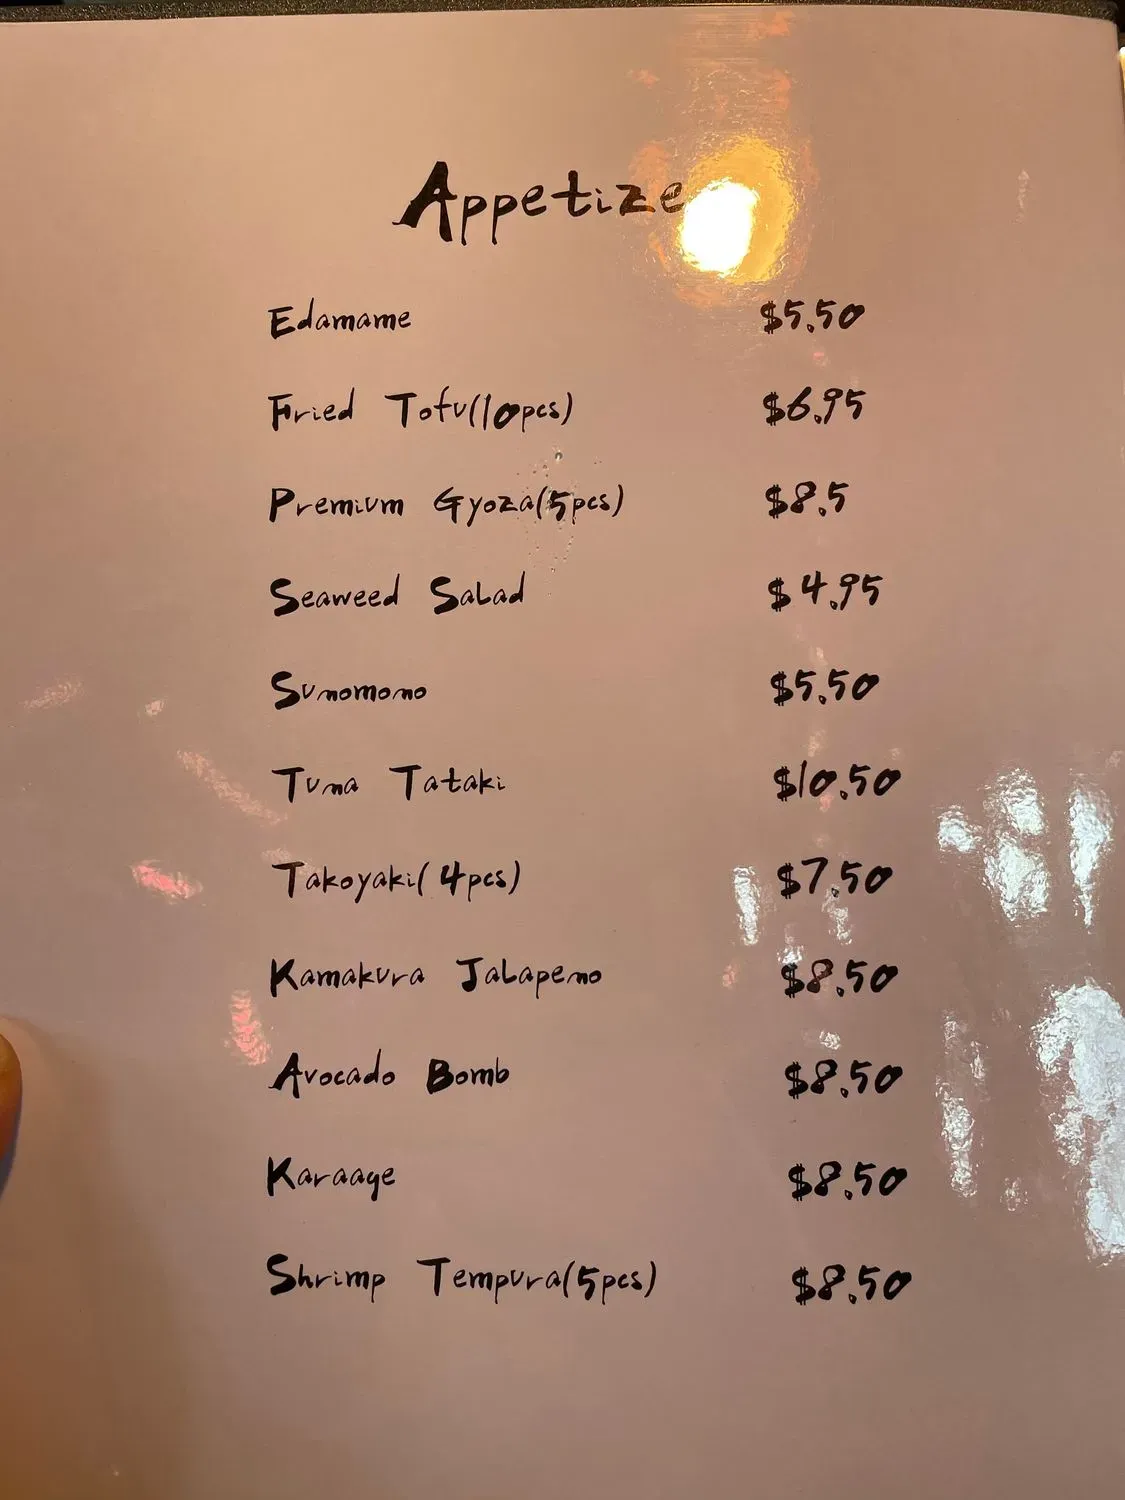 Appetize
Edamame $5.50
Fried Tofu(10pcs) $6.95
Premium Gyoza(5pcs) $8.5
Seaweed Salad $4.95
Sunomono $5.50
Tuna Tataki $10.50
Takoyaki(4pcs) $7.50
Kamakura Jalapeno $8.50
Avocado Bomb $8.50
Karaage $8.50
Shrimp Tempura(5pcs) $8.50